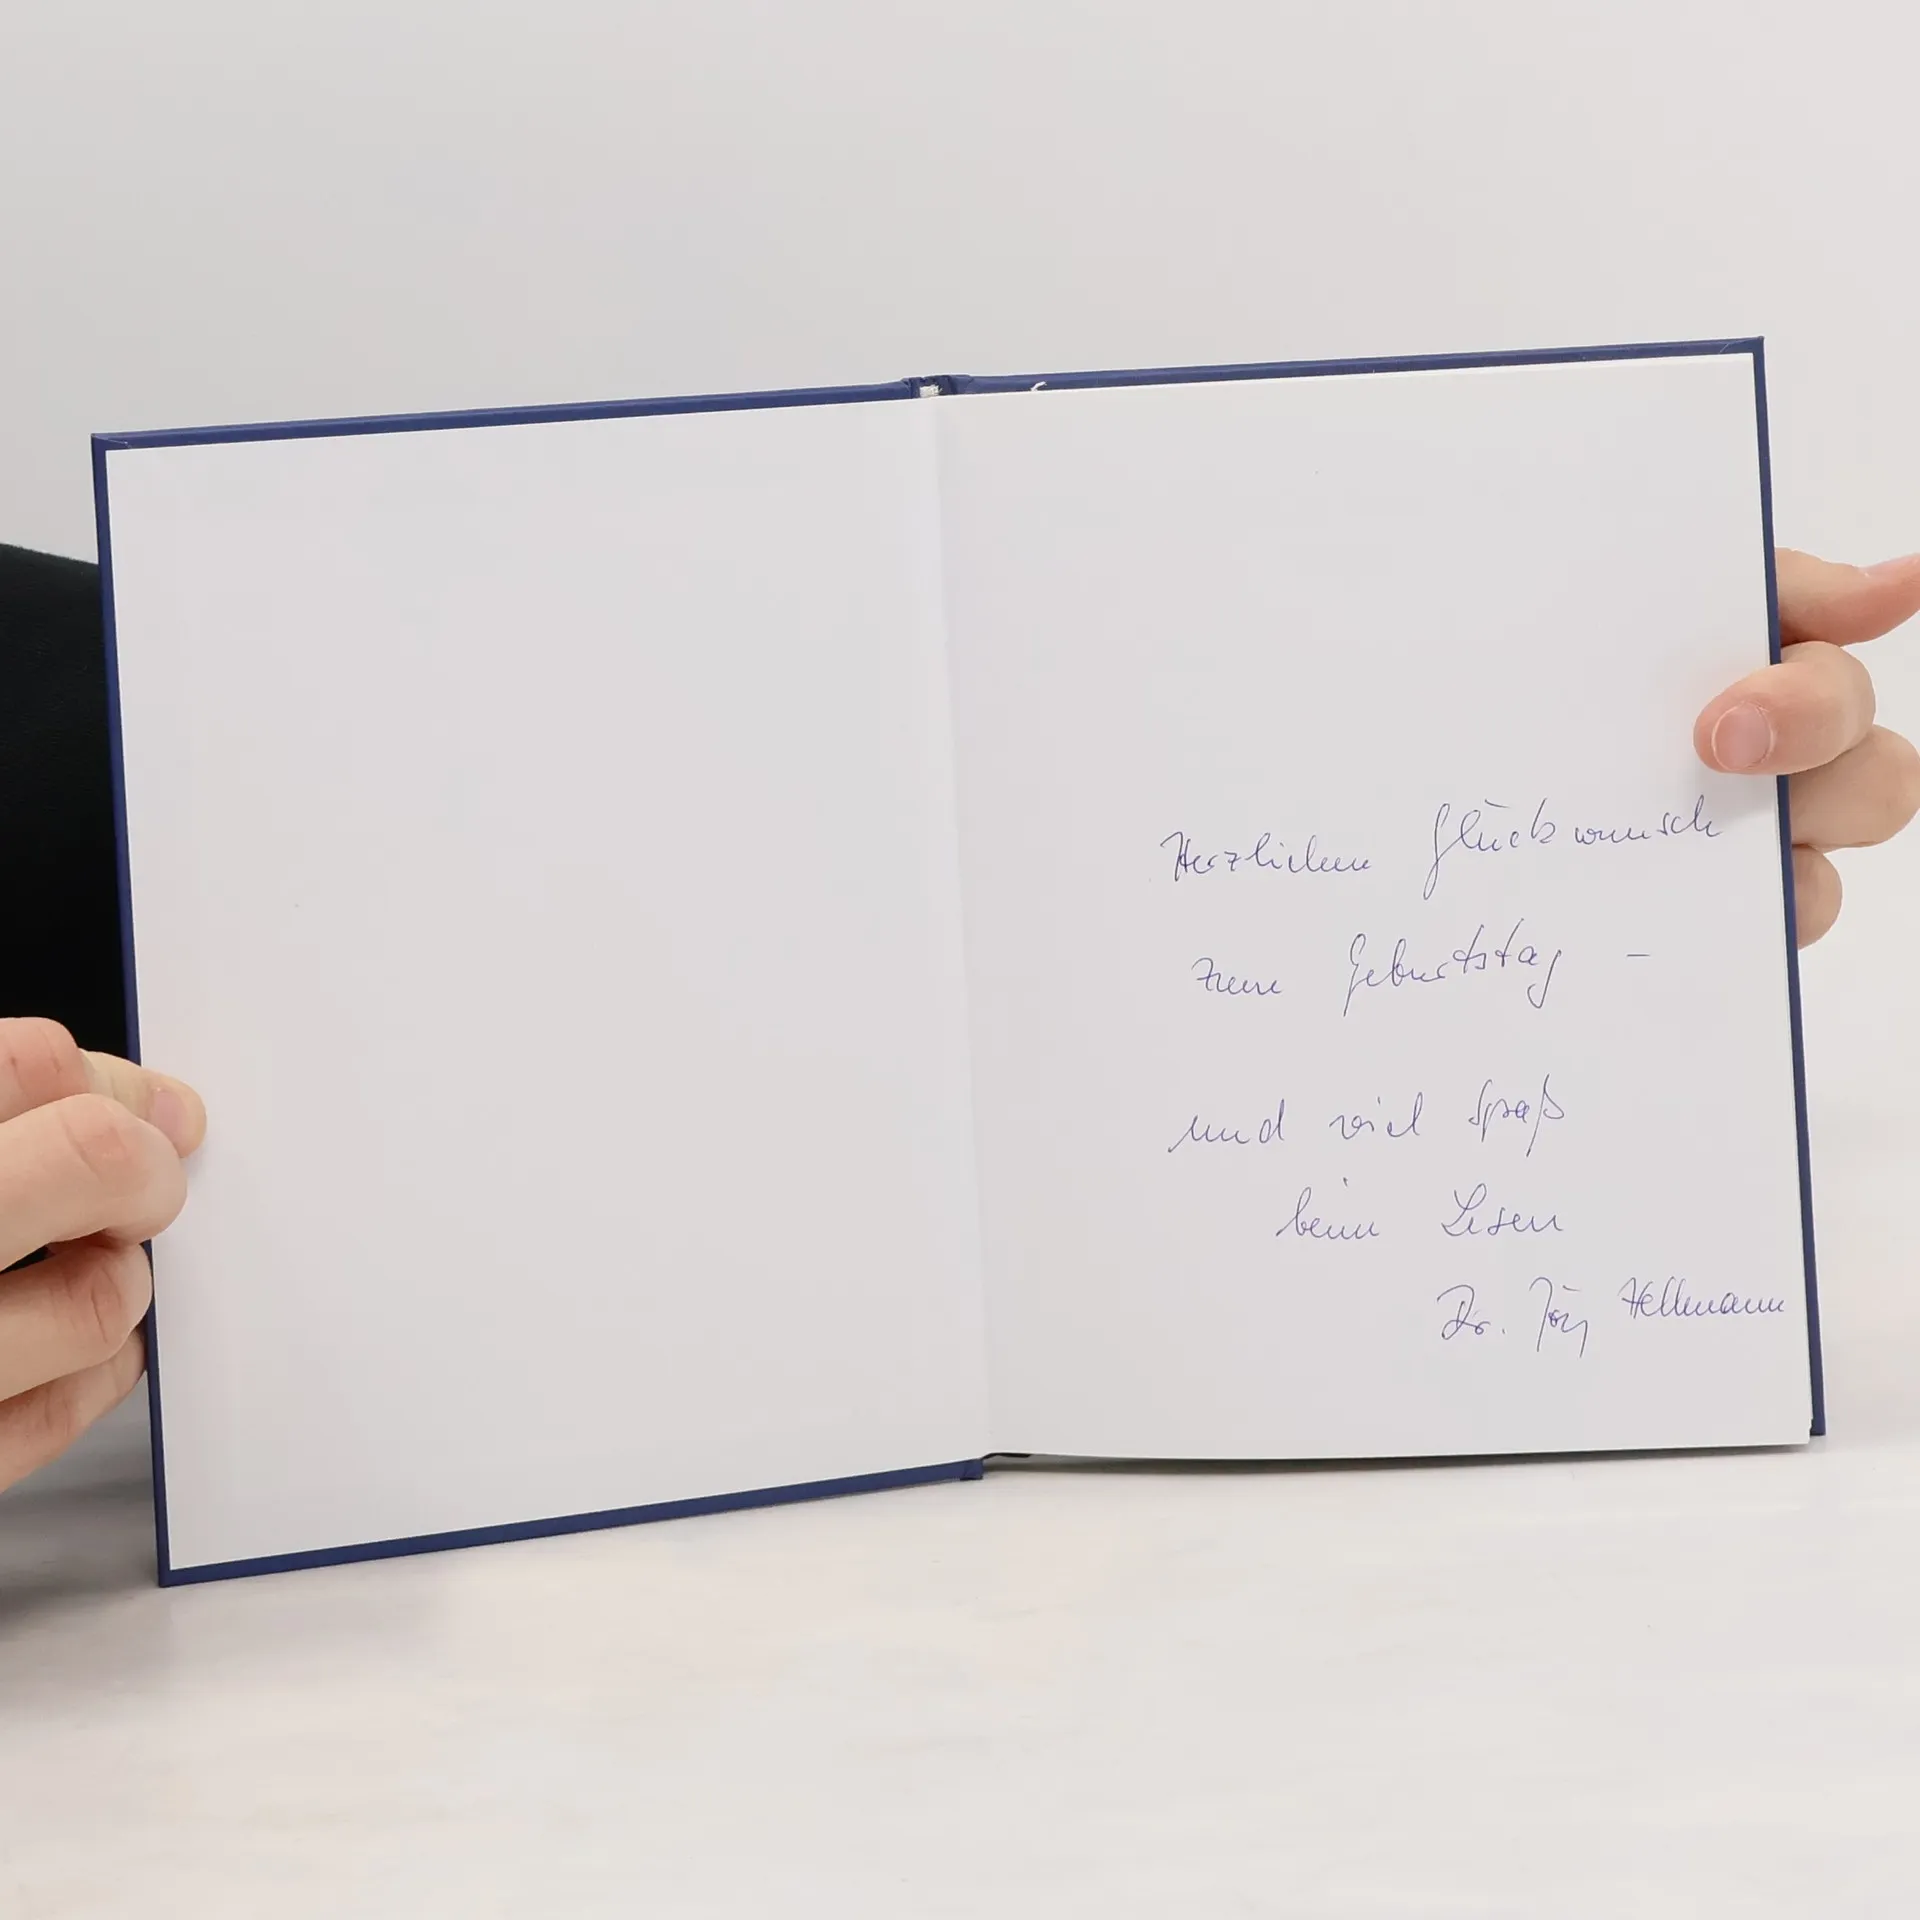 Herzlichen Glückwunsch
zum Geburtstag –
und viel Spaß
beim Lesen
Dr. Jörg Hellmann